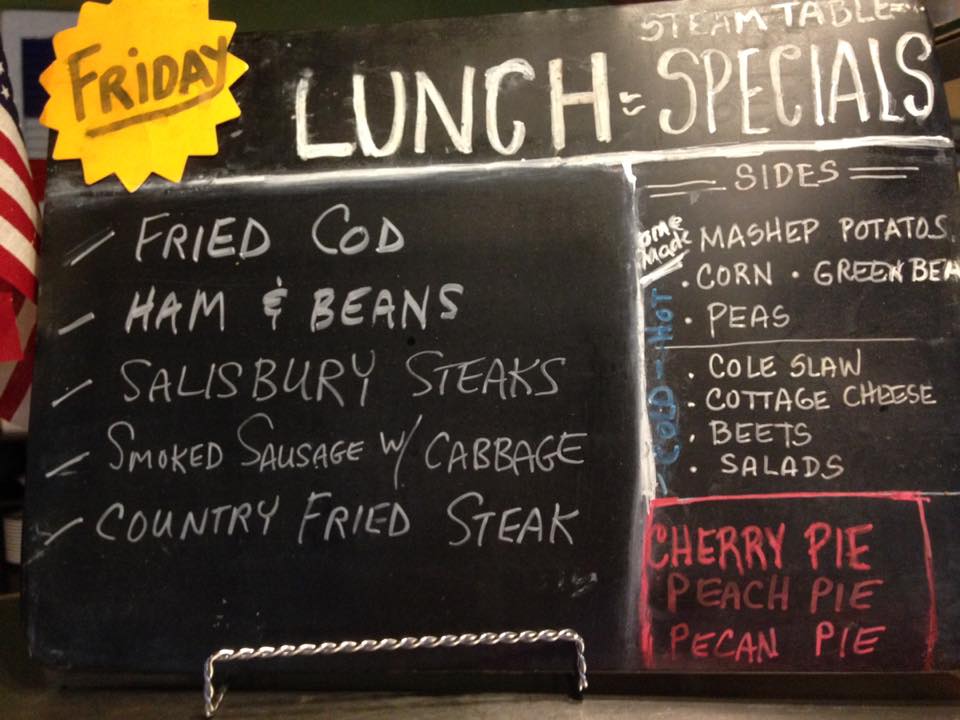 FRIDAY
STEAM TABLE
LUNCH = SPECIALS
FRIED COD
HAM & BEANS
SALISBURY STEAKS
SMOKED SAUSAGE W/ CABBAGE
COUNTRY FRIED STEAK
SIDES
Home Made
MASHEP POTATOS
· CORN · GREEN BEA
· PEAS
HOT
· COLE SLAW
· COTTAGE CHEESE
· BEETS
· SALADS
COLD
CHERRY PIE
PEACH PIE
PECAN PIE